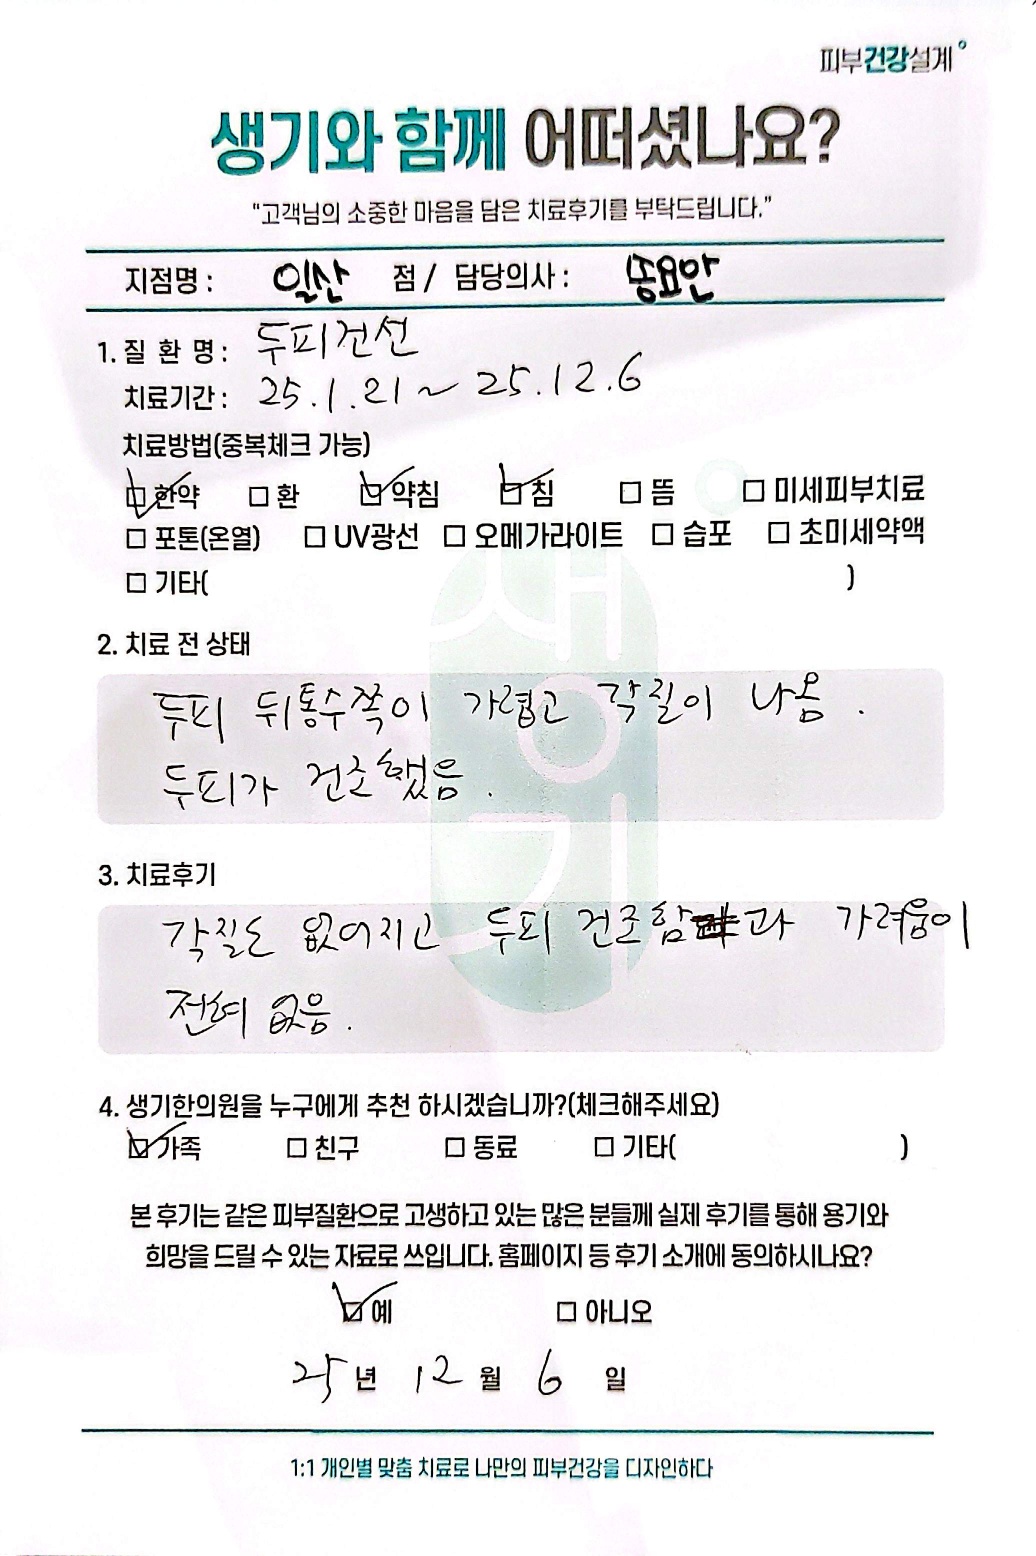 피부건강설계
생기와 함께 어떠셨나요?
"고객님의 소중한 마음을 담은 치료후기를 부탁드립니다."
지점명 : 일산 점 / 담당의사 : 송요안
1. 질 환 명 : 두피건선
치료기간 : 25.1.21 ~ 25.12.6
치료방법(중복체크 가능)
☑ 한약 □ 환 ☑ 약침 ☑ 침 □ 뜸 □ 미세피부치료
□ 포톤(온열) □ UV광선 □ 오메가라이트 □ 습포 □ 초미세약액
□ 기타( )
2. 치료 전 상태
두피 뒤통수쪽이 가렵고 각질이 나옴.
두피가 건조했음.
3. 치료후기
각질은 없어지고 두피 건조함과 가려움이
전혀 없음.
4. 생기한의원을 누구에게 추천 하시겠습니까?(체크해주세요)
☑ 가족 □ 친구 □ 동료 □ 기타( )
본 후기는 같은 피부질환으로 고생하고 있는 많은 분들께 실제 후기를 통해 용기와
희망을 드릴 수 있는 자료로 쓰입니다. 홈페이지 등 후기 소개에 동의하시나요?
☑ 예 □ 아니오
25년 12월 6일
1:1 개인별 맞춤 치료로 나만의 피부건강을 디자인하다
생기